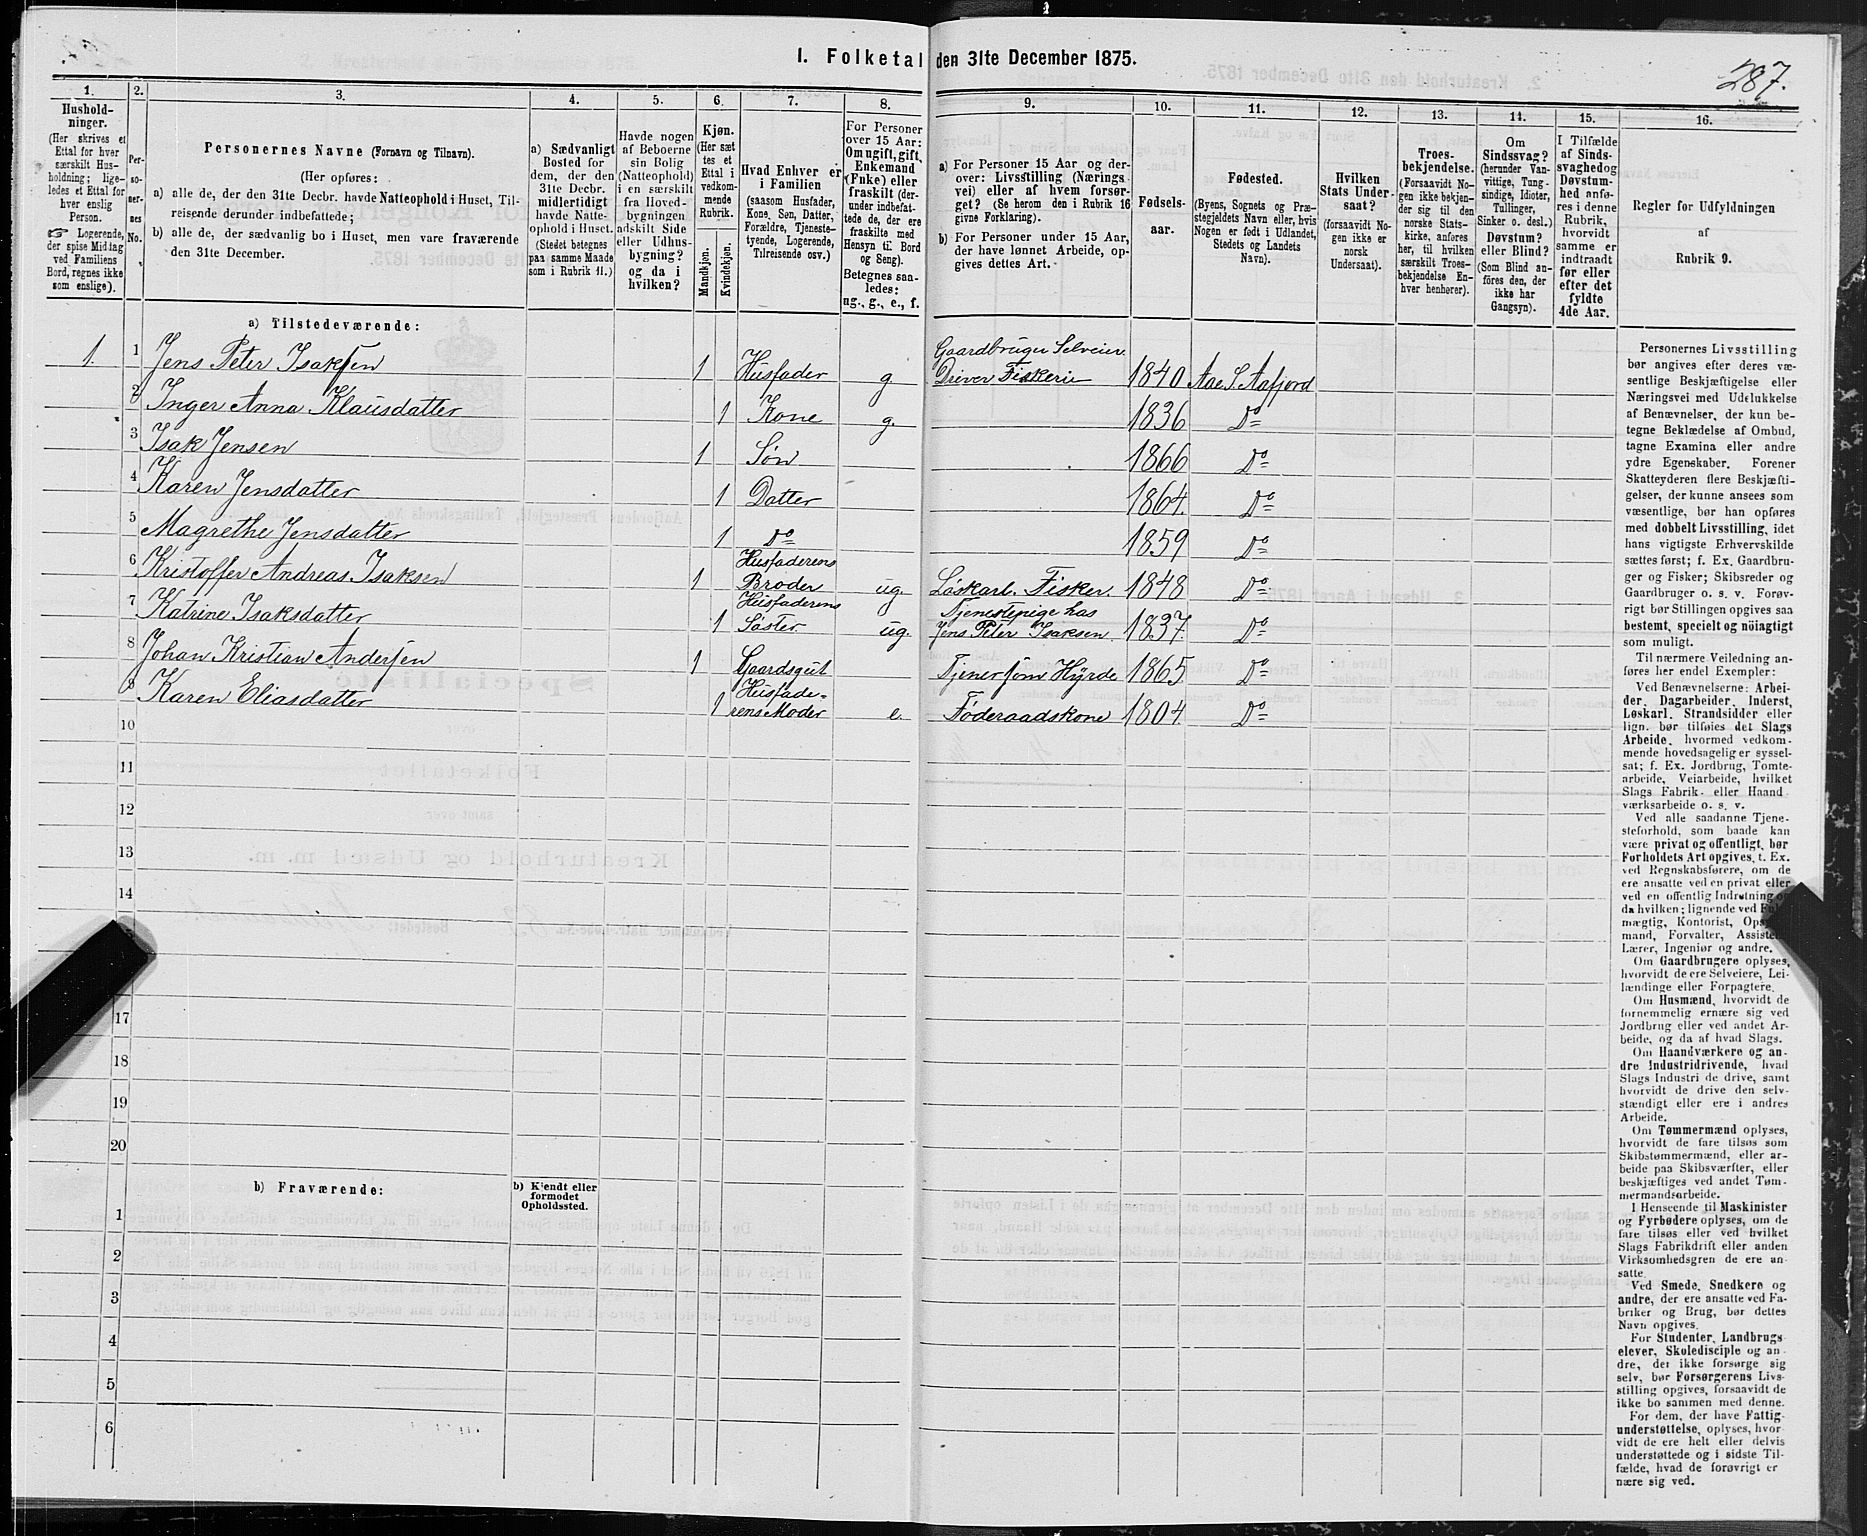 I. Folketal den 31te December 1875.
287.
1.
Husholdninger.
(Her skrives et Ettal for hver særskilt Husholdning; ligeledes et Ettal for hver enslig Person.
☞ Logerende, der spise Middag ved Familiens Bord, regnes ikke som enslige).
2.
Personernes No.
3.
Personernes Navne (Fornavn og Tilnavn).
(Her opføres:
a) alle de, der den 31te Decbr. havde Natteophold i Huset, Tilreisende derunder indbefattede;
b) alle de, der sædvanlig bo i Huset, men vare fraværende den 31te December.
4.
a) Sædvanligt Bosted for dem, der den 31te Decbr. midlertidigt havde Natteophold i Huset.
(Stedet betegnes paa samme Maade som i Rubrik 11.)
5.
Havde nogen af Beboerne sin Bolig (Natteophold) i en særskilt fra Hovedbygningen adskilt Side eller Udhusbygning? og da i hvilken?
6.
Kjøn.
(Her sættes et Ettal i vedkommende Rubrik.
Mandkjøn.
Kvindekjøn.
7.
Hvad Enhver er i Familien
(saasom Husfader, Kone, Søn, Datter, Forældre, Tjenestetyende, Logerende, Tilreisende osv.)
8.
For Personer over 15 Aar: Om ugift, gift, Enkemand (Enke) eller fraskilt (derunder indbefattede de, der ere fraskilte med Hensyn til Bord og Seng).
Betegnes saaledes: ug., g., e., f.
9.
a) For Personer 15 Aar og derover: Livsstilling (Næringsvei) eller af hvem forsørget? (Se herom den i Rubrik 16 givne Forklaring).
b) For Personer under 15 Aar, der have lønnet Arbeide, opgives dettes Art.
10.
Fødselsaar.
11.
Fødested.
(Byens, Sognets og Præstegjeldets Navn eller, hvis Nogen er født i Udlandet, Stedets og Landets Navn).
12.
Hvilken Stats Undersaat?
(forsaavidt Nogen ikke er norsk Undersaat).
13.
Troesbekjendelse.
(Forsaavidt Nogen ikke bekjender sig til den norske Statskirke, anføres her, til hvilken særskilt Troesbekjendelse Enhver henhører).
14.
Om Sindssvag? (herunder Vanvittige, Tungsindige, Idioter, Tullinger, Sinker o. desl.)
Døvstum? eller Blind?
(Som Blind anføres den, der ikke har Gangsyn).
15.
I Tilfælde af Sindssvaghed og Døvstumhed anføres i denne Rubrik, hvorvidt samme er indtraadt før eller efter det fyldte 4de Aar.
16.
Regler for Udfyldningen af Rubrik 9.
a) Tilstedeværende:
1. 1 Jens Peter Isaksen 1 Husfader g Gaardbruger Selveier Driver Fiskeri 1840 Aae S. Aafjord
2 Inger Anna Klausdatter 1 Kone g. 1836 Do
3 Isak Jensen 1 Søn 1866 Do
4 Karen Jensdatter 1 Datter 1864. Do
5 Magrethe Jensdatter 1 Do 1859 Do
6 Kristoffer Andreas Isaksen 1 Husfaderens Broder ug. Løskarl. Fisker. 1848 Do
7 Katrine Isaksdatter 1 Husfaderens Søster ug. Tjenestepige hos Jens Peter Isaksen 1837. Do
8 Johan Kristian Andersen 1 Gaardsgut Tjener som Hyrde 1865 Do
9 Karen Eliasdatter 1 Husfaderens Moder e. Føderaadskone 1804. Do
10
11
12
13
14
17
18
19
20
b) Fraværende:
b) Kjendt eller formodet Opholdssted.
1
2
3
4
5
6
Personernes Livsstilling
bør angives efter deres væ-
sentlige Beskjæftigelse eller
Næringsvei med Udelukkelse
af Benævnelser, der kun be-
tegne Beklædelse af Ombud,
tagne Examina eller andre
ydre Egenskaber. Forener
Skatteyderen flere Beskjæfti-
gelser, der kunne ansees som
væsentlige, bør han opføres
med dobbelt Livsstilling, idet
hans vigtigste Erhvervskilde
sættes først; f. Ex. Gaardbru-
ger og Fisker; Skibsreder og
Gaardbruger o. s. v. Forøv-
rigt bør Stillingen opgives saa
bestemt, specielt og nöiagtigt
som muligt.
Til nærmere Veiledning an-
føres her endel Exempler:
Ved Benævnelserne: Arbei-
der, Dagarbeider, Inderst,
Løskarl, Strandsidder eller
lign. bør tilføies det Slags
Arbeide, hvormed vedkom-
mende hovedsagelig er syssel-
sat; f. Ex. Jordbrug, Tomte-
arbeide, Veiarbeide, hvilket
Slags Fabrik- eller Haand-
værksarbeide o. s. v.
Ved alle saadanne Tjene-
steforhold, som baade kan
være privat og offentligt, bør
Forholdets Art opgives, t. Ex.
ved Regnskabsførere, om de
ere ansatte ved en privat eller
ved en offentlig Indretning og
da hvilken; lignende ved
mægtig, Kontorist,
mand, Forvalter,
Lærer, Ingeniør og andre.
Om Gaardbrugere oplyses,
hvorvidt de ere Selveiere, Lei-
lændinge eller Forpagtere.
Om Husmænd, hvorvidt de
fornemmelig ernære sig ved
Jordbrug eller ved andet Ar-
beide, og da af hvad Slags.
Om Haandværkere og an-
dre Industridrivende, hvad
Slags Industri de drive, samt
hvorvidt de drive den selv-
stændigt eller ere i andres
Arbeide.
Om Tømmermænd oplyses,
hvorvidt de fare tilsøs som
Skibstømmermænd, eller ar-
beide paa Skibsværfter, eller
beskjæftiges ved andet Tøm-
mermandsarbeide.
I Henseende til Maskinister
og Fyrbødere oplyses, om de
fare tilsøs eller ved hvilket
Slags Fabrikdrift eller anden
Virksomhedsgren de ere an-
satte.
Ved Smede, Snedkere og
andre, der ere ansatte ved Fa-
briker og Brug, bør dettes
Navn opgives.
For Studenter, Landbrugs-
elever, Skoledisciple og an-
dre, der ikke forsørge sig
selv, bør Forsørgerens Livs-
stilling opgives, forsaavidt de
ikke bo sammen med denne.
For dem, der have Fattig-
understøttelse, oplyses, hvor-
vidt de ere helt eller delvis
understøttede og i sidste Til-
fælde, hvad de forøvrigt er-
nære sig ved.